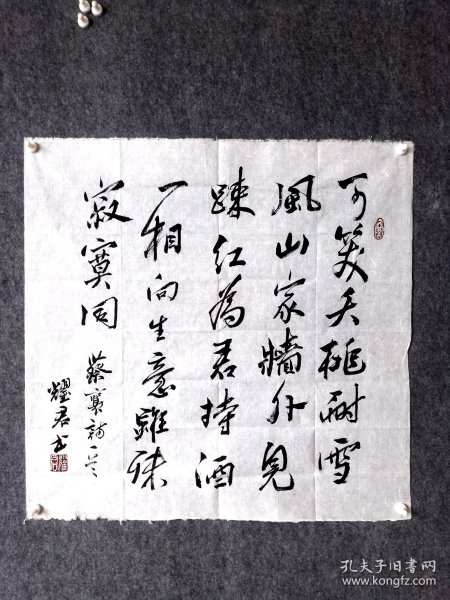 可笑夭桃耐雪
風山家牆外見
踈红為君持酒
一相向生意雖殊
寂寞同
蔡襄詩一首
耀君书
孔夫子旧书网
www.kongfz.com